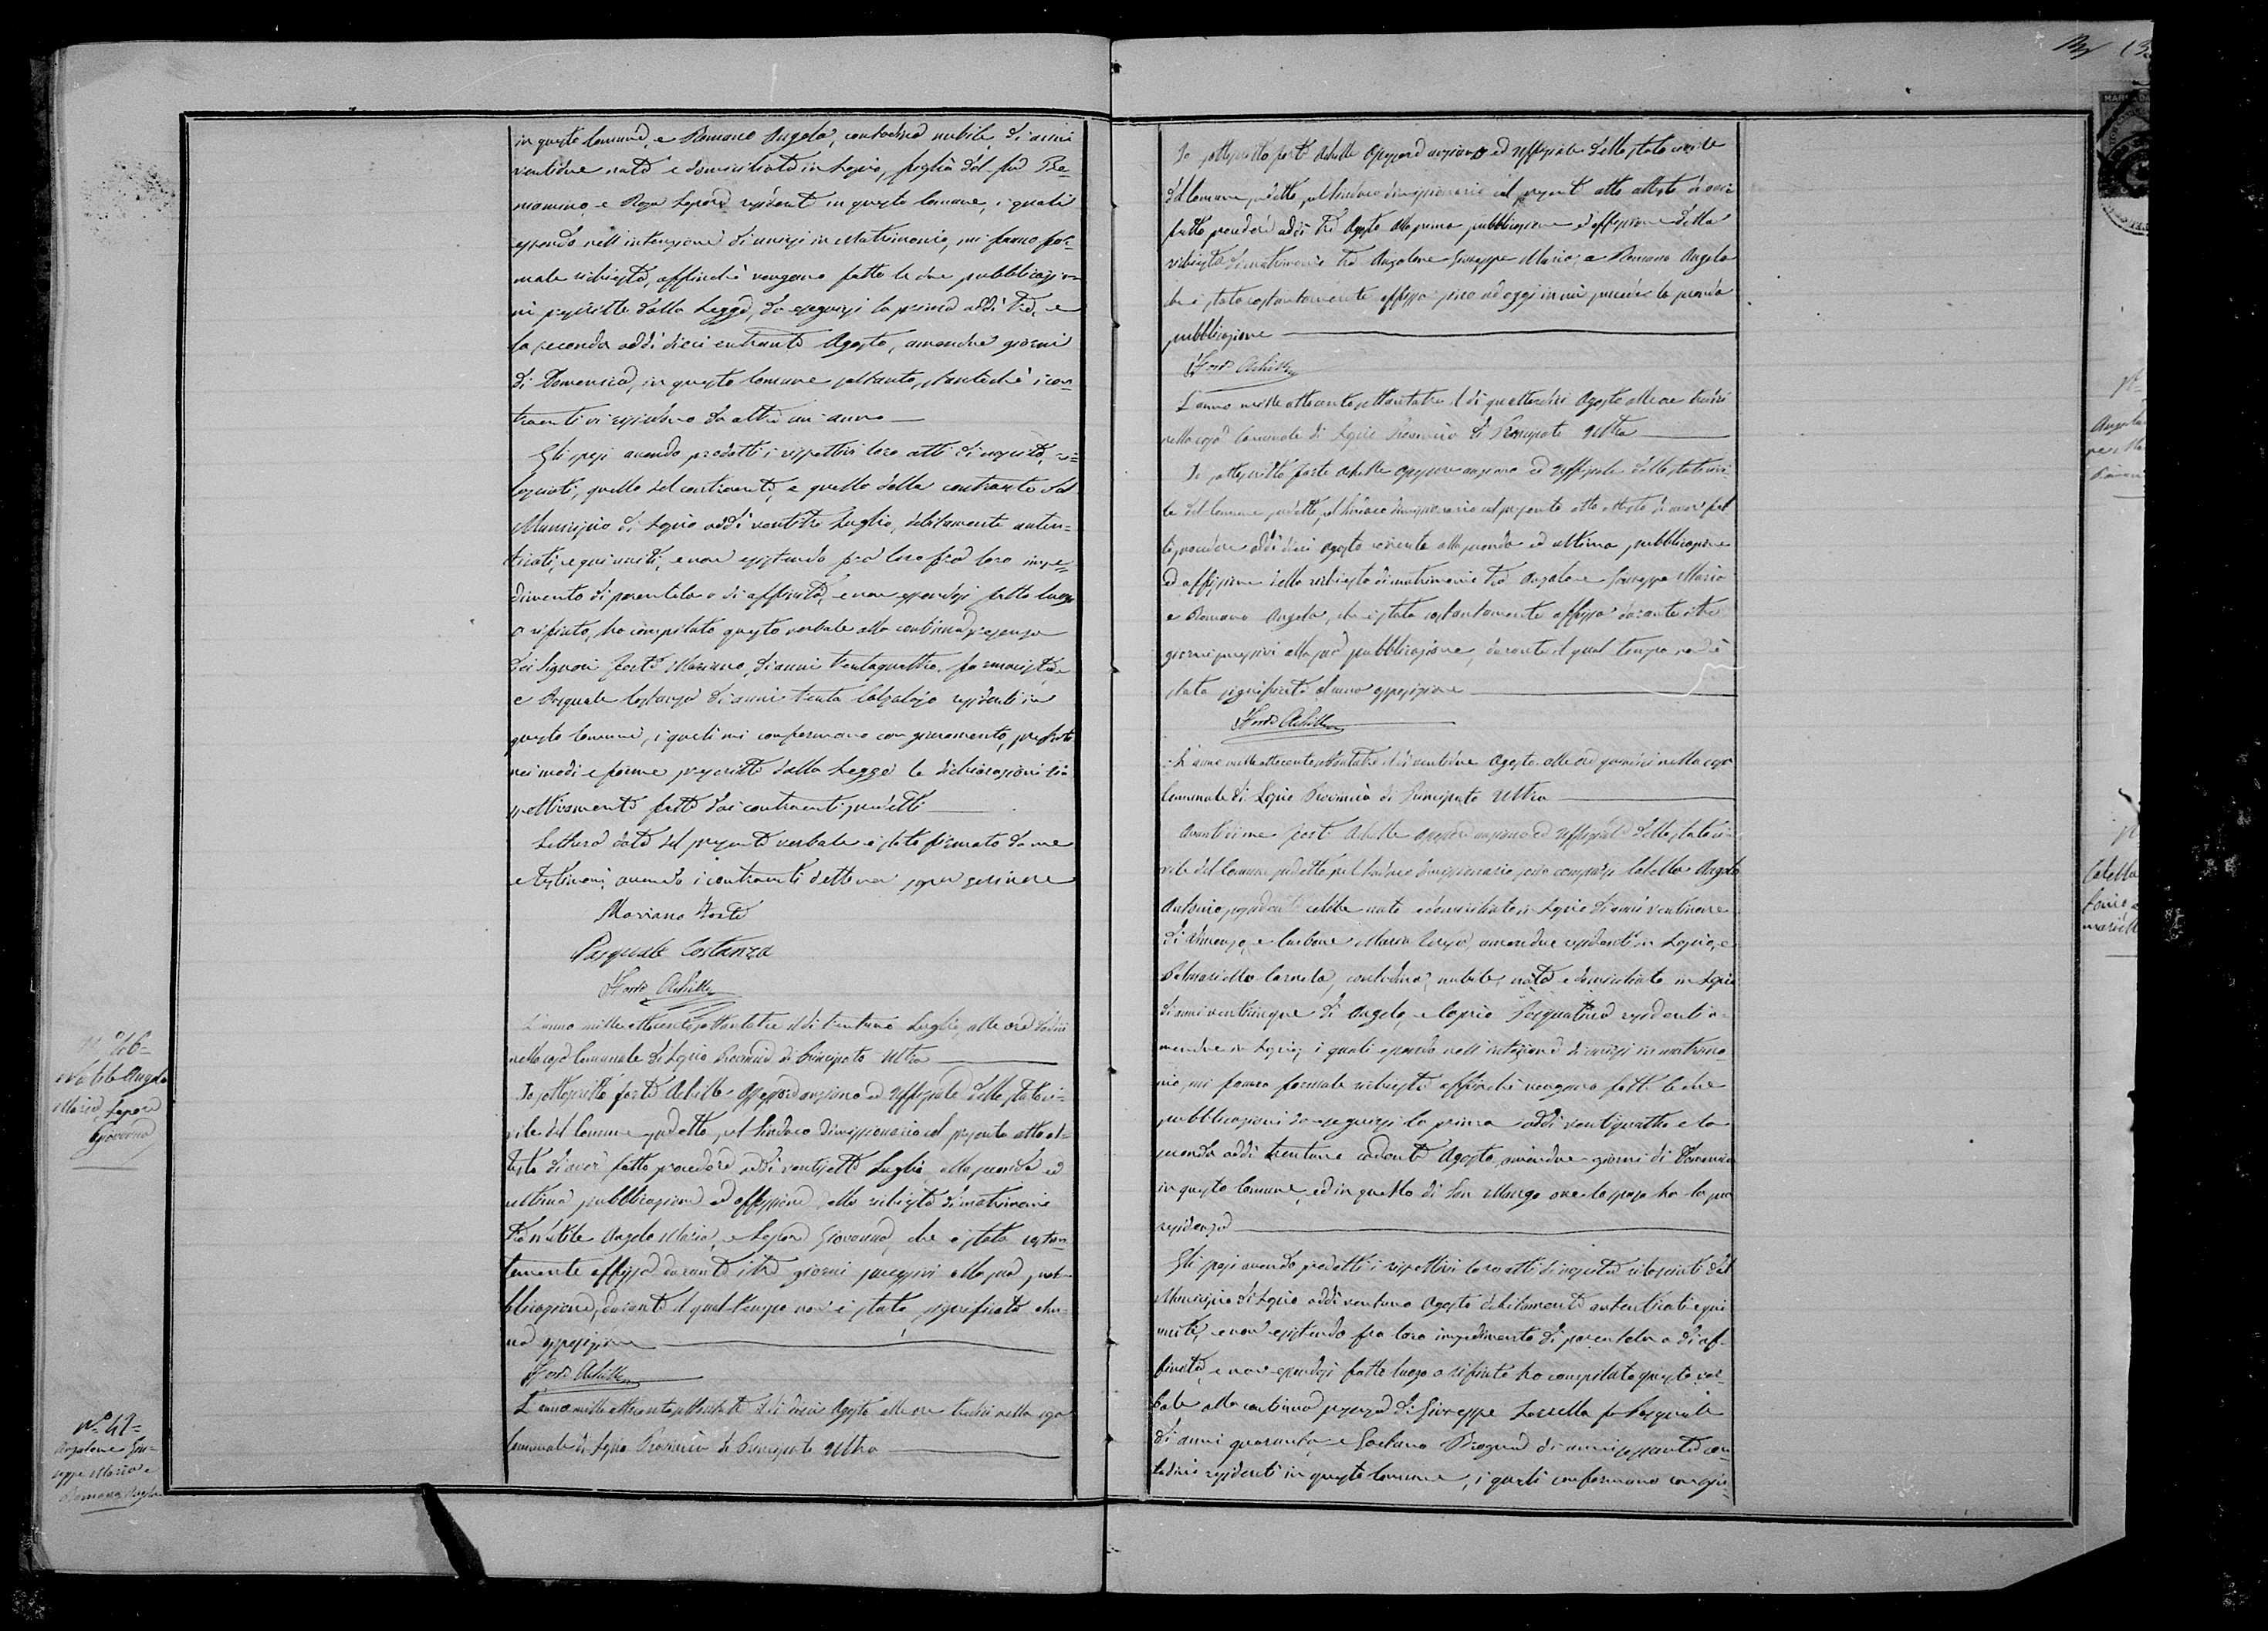 in questo Comune, e Romano Angela, contadina nubile, di anni
ventidue nata e domiciliata in Lapio, figlia del fu Be-
niamino, e Rosa Lepore residenti in questo Comune, i quali
essendo nell'intenzione di unirsi in Matrimonio, mi fanno for-
male richiesta, affinchè vengano fatte le due pubblicazio-
ni prescritte dalla Legge, da eseguirsi la prima addì tre, e
la seconda addì dieci entrante Agosto, amendue giorni
di Domenica, in questo Comune soltanto, stantechè i con-
traenti vi risiedono da oltre un anno
Gli sposi avendo prodotti i rispettivi loro atti di nascita, ri-
lasciati, quello del contraente, e quello della contraente dal
Municipio di Lapio addì ventitre Luglio, debitamente auten-
ticati, e qui uniti, e non esistendo fra loro fra loro impe-
dimento di parentela o di affinità, e non essendosi fatto luogo
a rifiuto, ho compilato questo verbale alla continua presenza
dei Signori Forte Mariano, di anni trentaquattro, farmacista,
e Pasquale Costanza di anni trenta Calzolajo residenti in
questo Comune, i quali mi confermano con giuramento, prestato
nei modi e forme prescritte dalla Legge le dichiarazioni ri-
spettivamente fatte dai contraenti sudetti
Lettura data del presente verbale è stato firmato da me
e testimoni, avendo i contraenti detto non saper scrivere
Mariano Forte
Pasquale Costanza
Forte Achille
N° 46=
Natile Angelo
Maria, Lepore
Giovanna
L'anno mille ottocento settantatre il dì trentuno Luglio, alle ore dodici
nella casa Comunale di Lapio Provincia di Principato Ultra
Io sottoscritto Forte Achille Assessore anziano ed Uffiziale dello stato ci-
vile del Comune sudetto, pel Sindaco dimissionario col presente atto at-
testo di aver fatto procedere addì ventisette Luglio alla seconda ed
ultima pubblicazione ed affissione della richiesta di matrimonio
tra Natile Angelo Maria, e Lepore Giovanna, che è stata costan-
temente affissa durante i tre giorni successivi alla sud. pub-
blicazione, durante il qual tempo non è stata significata alcu-
na opposizione
Forte Achille
N° 47=
Angelone Giu-
seppe Maria e
Romano Angela
L'anno mille ottocento settantatre il dì dieci Agosto alle ore tredici nella casa
Comunale di Lapio Provincia di Principato Ultra
Io sottoscritto Forte Achille Assessore anziano ed Uffiziale dello stato civile
del Comune sudetto, pel Sindaco dimissionario col presente atto attesto di aver
fatto procedere addì tre Agosto alla prima pubblicazione ed affissione della
richiesta di matrimonio tra Angelone Giuseppe Maria, e Romano Angela
che è stata costantemente affissa sino ad oggi in cui succede la seconda
pubblicazione
Forte Achille
L'anno mille ottocento settantatre il dì quattordici Agosto alle ore tredici
nella casa Comunale di Lapio Provincia di Principato Ultra
Io sottoscritto Forte Achille Assessore anziano ed Uffiziale dello stato civi-
le del Comune sudetto, pel Sindaco dimissionario col presente atto attesto di aver fat-
to procedere addì dieci Agosto corrente alla seconda ed ultima pubblicazione
ed affissione della richiesta di matrimonio tra Angelone Giuseppe Maria
e Romano Angela, che è stata costantemente affissa durante i tre
giorni successivi alla sud. pubblicazione, durante il qual tempo non è
stata significata alcuna opposizione
Forte Achille
L'anno mille ottocento settantatre il dì ventidue Agosto alle ore quindici nella casa
Comunale di Lapio Provincia di Principato Ultra
Avanti di me Forte Achille Assessore anziano ed Uffiziale dello stato ci-
vile del Comune sudetto pel Sindaco dimissionario sono comparsi Calella Angelo
Antonio celibe nato e domiciliato in Lapio di anni ventinove
di Vincenzo, e Carbone Maria amendue residenti in Lapio, e
Palmariello Carmela, contadina, nubile, nata e domiciliata in Lapio
di anni venticinque di Angelo, e residenti a-
mendue in Lapio, i quali essendo nell'intenzione di unirsi in matrimo-
nio, mi fanno formale richiesta affinchè vengano fatte le due
pubblicazioni da eseguirsi la prima addì ventiquattro e la
seconda addì trentuno cadente Agosto, amendue giorni di Domenica
in questo Comune, ed in quello di San Mango ove lo sposo ha la sua
residenza
Gli sposi avendo prodotti i rispettivi loro atti di nascita rilasciati dal
Municipio di Lapio addì ventuno Agosto debitamente autenticati e qui
uniti, e non esistendo fra loro impedimento di parentela o di af-
finità, e non essendosi fatto luogo a rifiuto ho compilato questo ver-
bale alla continua presenza di Giuseppe fu Pasquale
di anni quaranta, e Gaetano di anni sessanta con-
tadini residenti in questo Comune, i quali confermano con giu-